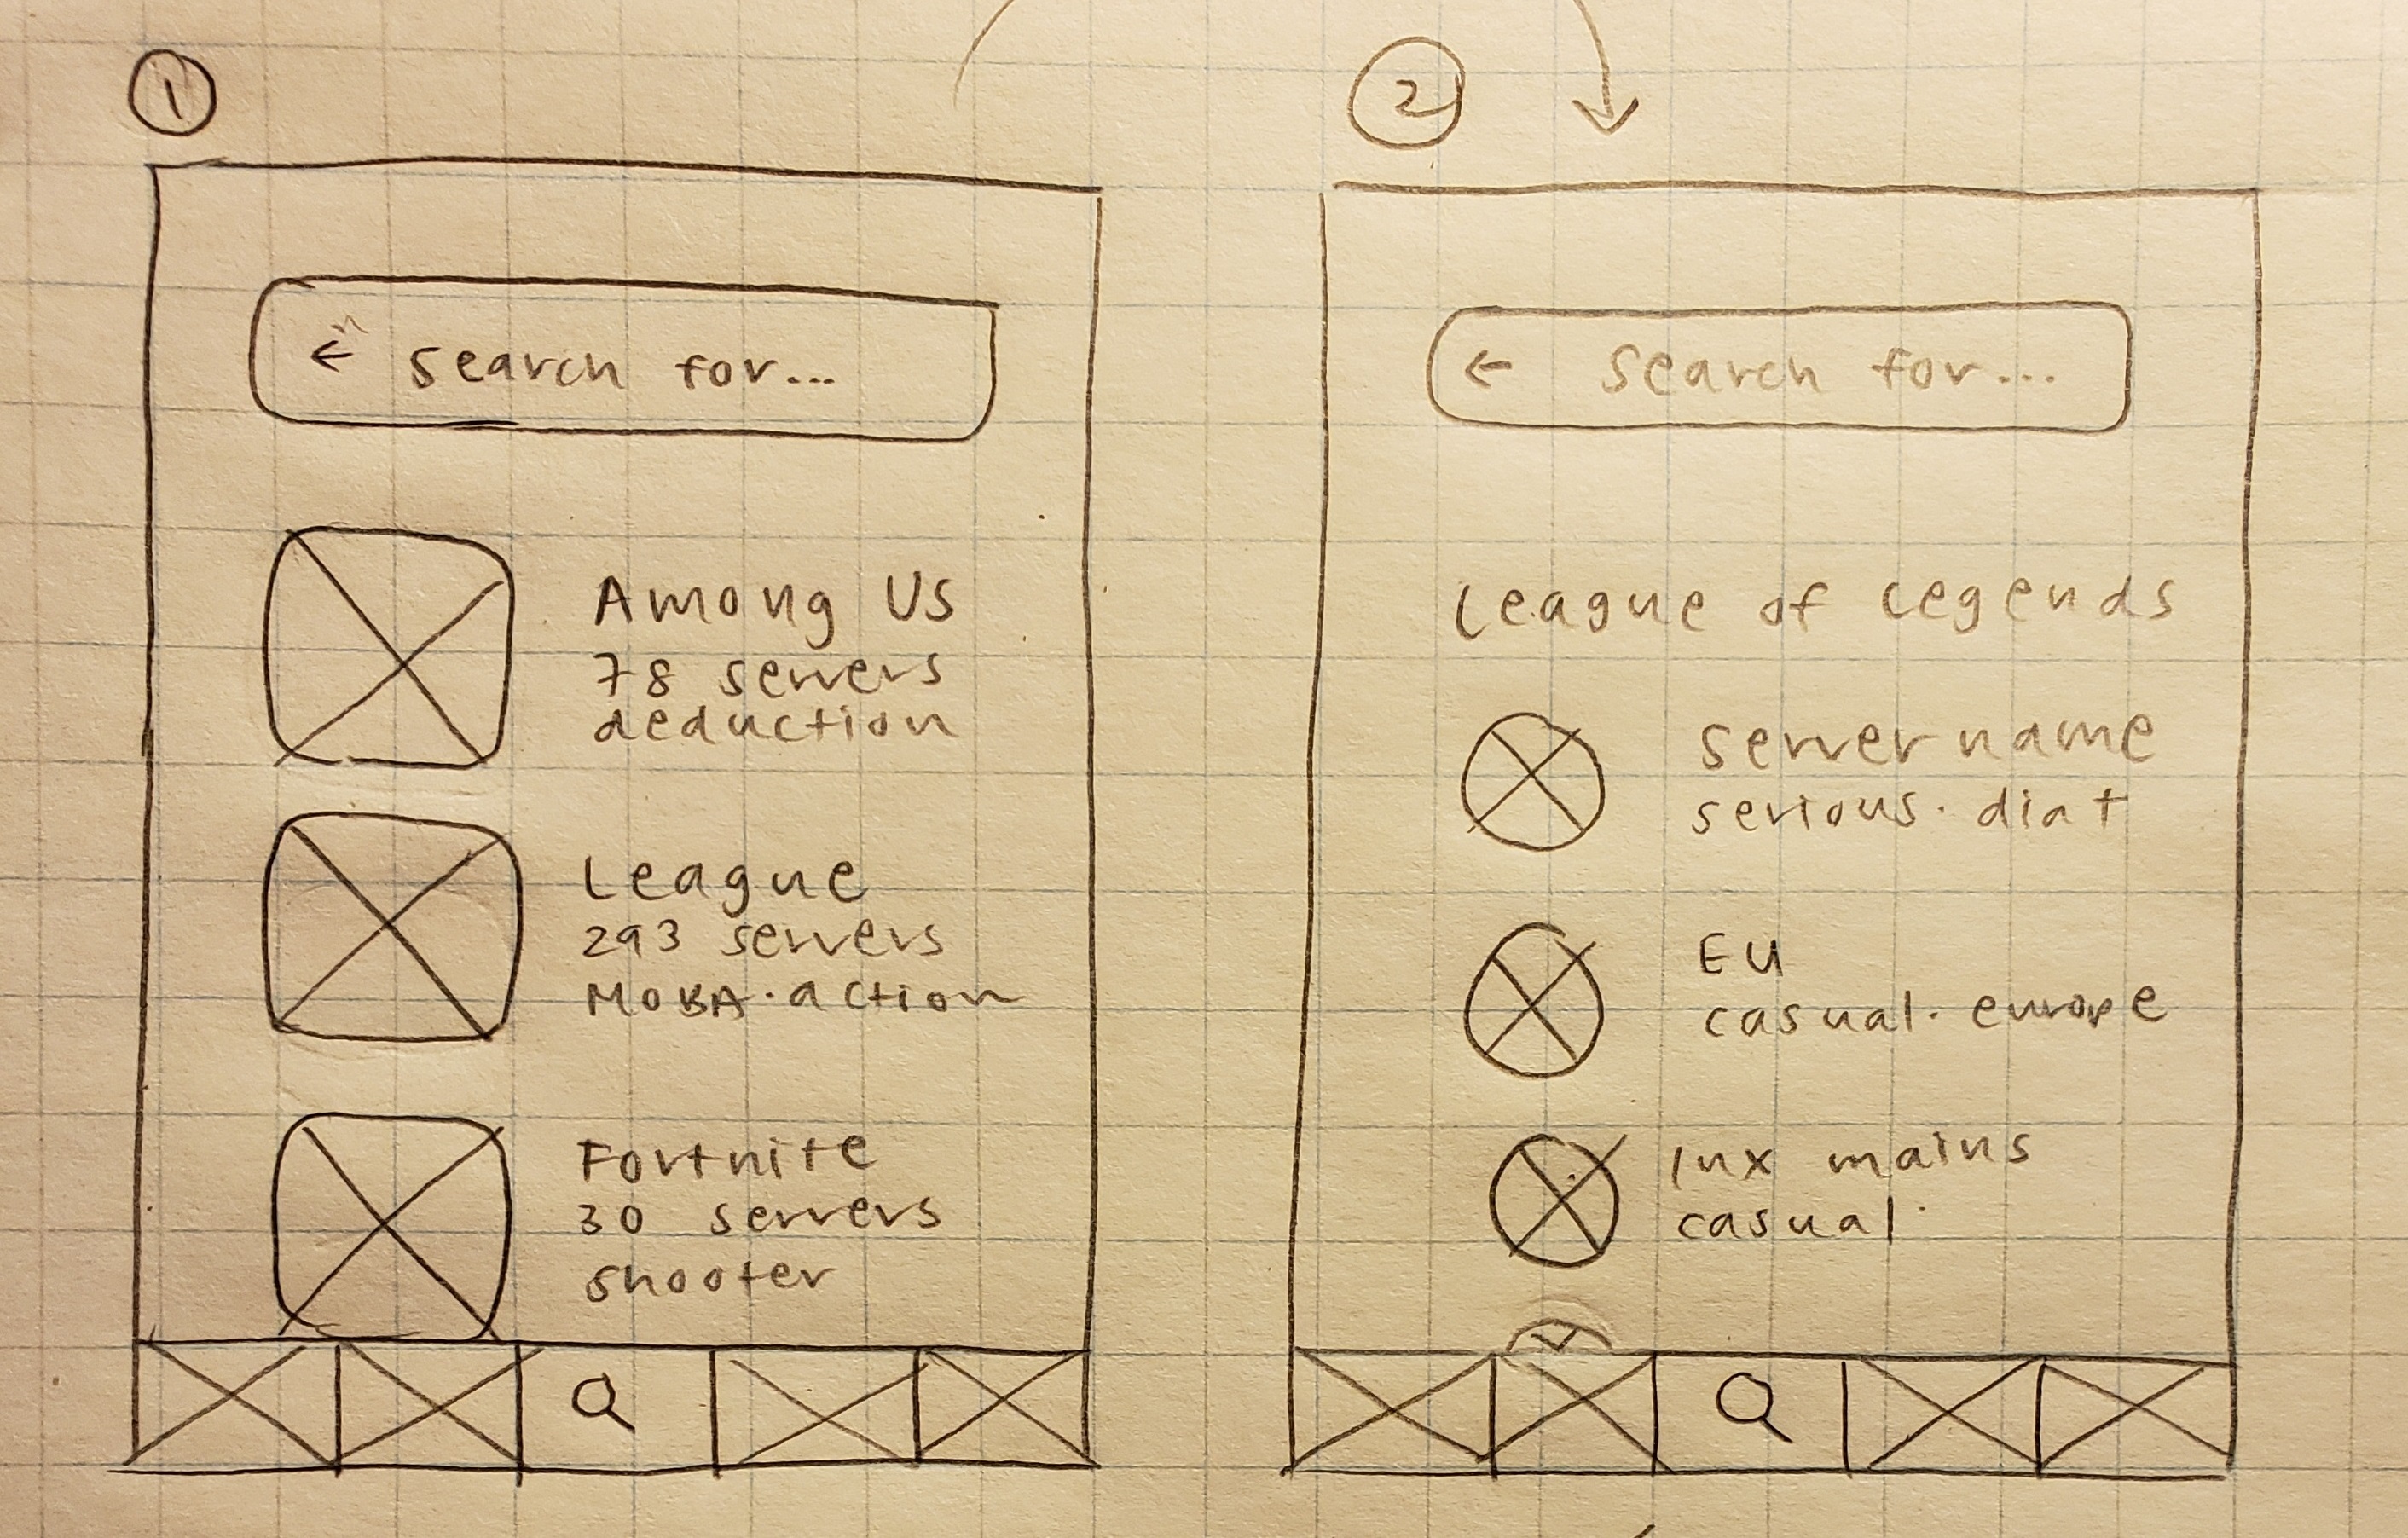 1
← search for...
Among Us
78 servers
deduction
League
293 servers
MOBA · action
Fortnite
30 servers
shooter
2
← search for...
League of Legends
server name
serious ·
EU
casual · europe
casual ·